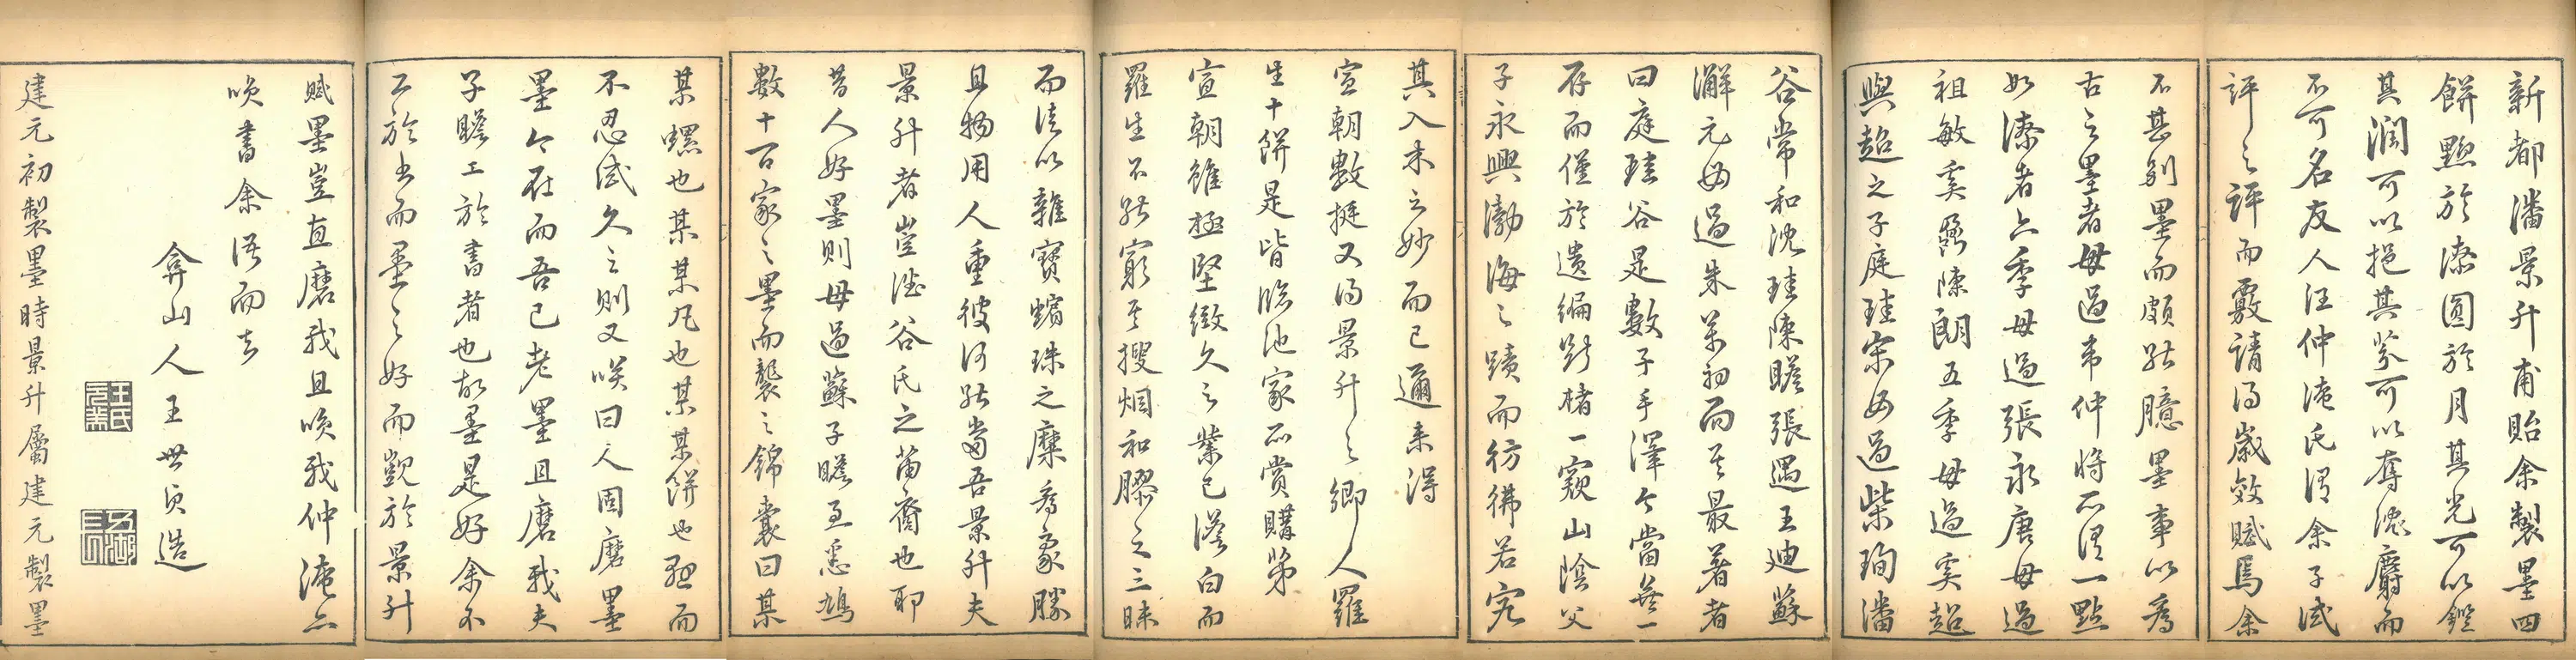 新都潘景升甫貽余製墨四
餅黝於漆圓於月其光可以鑑
其潤可以挹其芬可以奪沈麝而
不可名友人汪仲淹氏謂余子試
評之評而覈請得歲效賦焉余
不甚別墨而頗能臆墨事以為
古之墨者毋過韋仲將所謂一點
如漆者六季毋過張永唐毋過
祖敏奚鼐陳朗五季毋過奚超
與超之子庭珪宋毋過柴珣潘
谷常和沈珪陳瞻張遇王迪蘇
澥元毋過朱萬初而其最著者
曰庭珪谷是數子手澤今當無一
存而僅於遺編斷楮一窺山陰父
子永興渤海之蹟而彷彿若宛
其入木之妙而已邇來得
宣朝數挺又得景升之鄉人羅
生十餅是皆臨池家所賞購第
宣朝雖極堅緻久之業已漸白而
羅生不能窮其搜烟和膠之三昧
而徒以雜寶螾珠之糜為豪勝
且物用人重彼何能當吾景升夫
景升者豈徒谷氏之苗裔也耶
昔人好墨則毋過蘇子瞻至悉鳩
數十百家之墨而襲之錦囊曰某
某螺也某某丸也某某餅也駔而
不忍試久之則又嘆曰人固磨墨
墨今在而吾已老墨且磨我夫
子瞻工於書者也故墨是好余不
工於書而墨之好而覬於景升
賦墨豈直磨我且喚我仲淹亦
喚書余語而去
弇山人王世貞造
王氏元美
建元初製墨時景升屬建元製墨